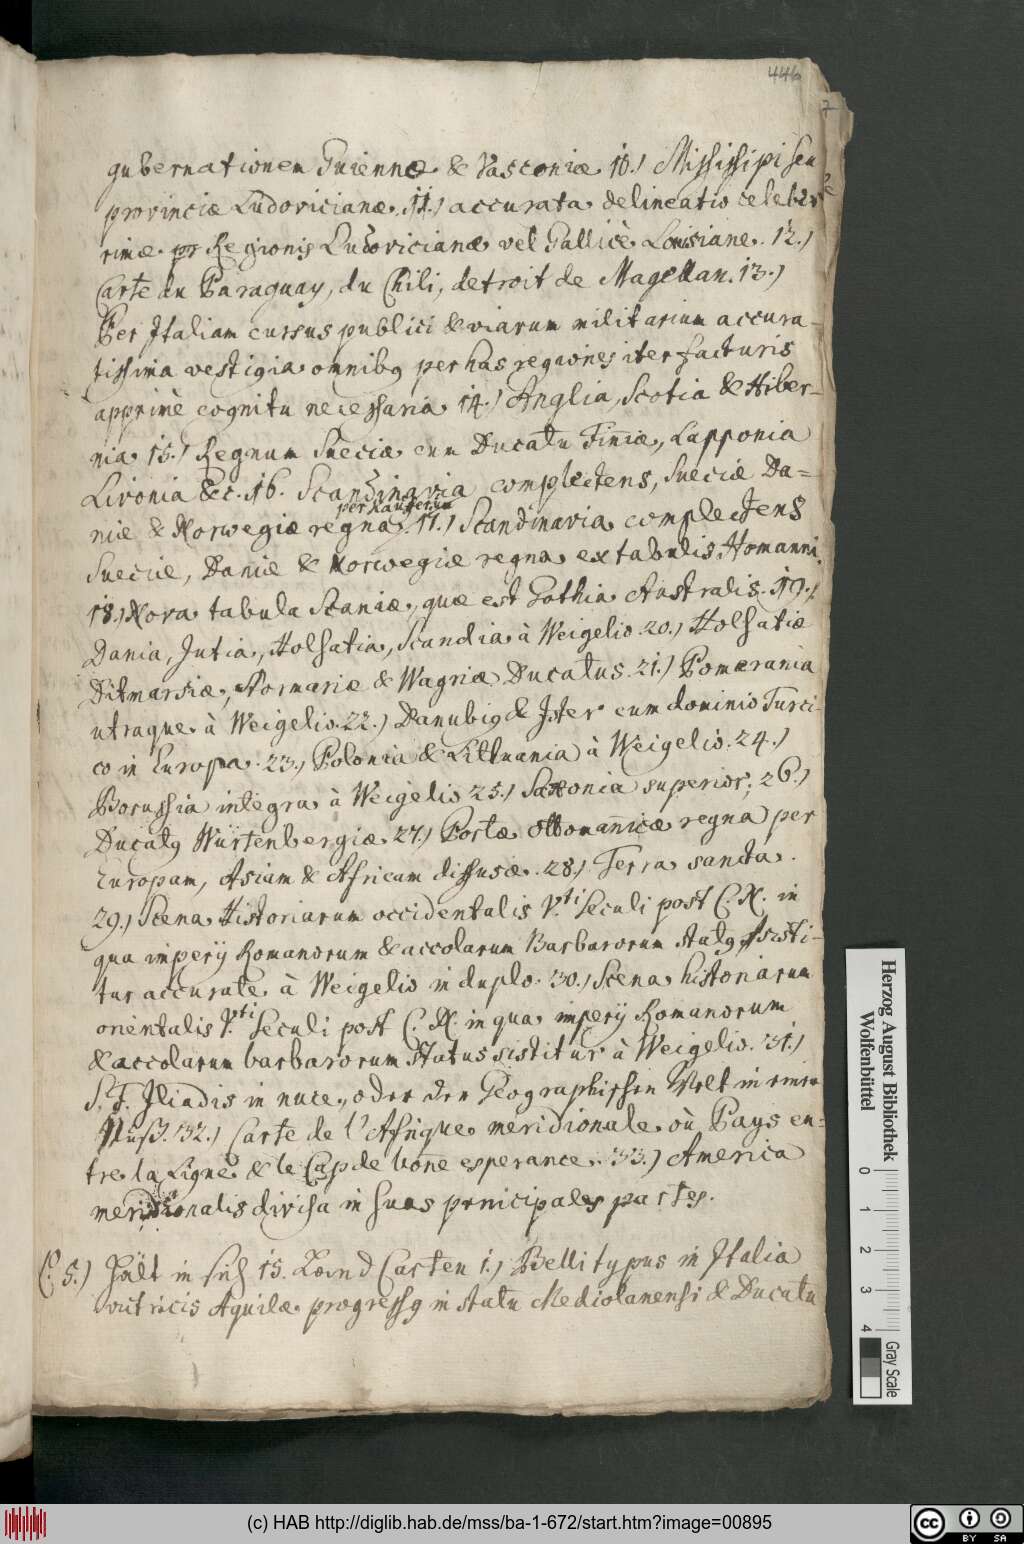 446
gubernationem Guiennæ & Vasconiæ 10.) Missisipi seu
provinciæ Ludovicianæ. 11.) accurata delineatio celeber
rimæ Regionis Ludovicianæ vel Gallicè Louisiane. 12.)
Carte du Paraguay, du Chili, detroit de Magellan. 13.)
Per Italiam cursus publici & viarum militarium accura-
tissima vestigia omnibq per has regiones iter facturis
apprimè cognitu necessaria 14.) Anglia, Scotia & Hiber-
nia 15.) Regnum Sueciæ cum Ducatu Finiæ, Lapponia
Livonia &c. 16. Scandinavia complectens, Sueciæ Da=
niæ & Norwegiæ regna. 17.) Scandinavia complectens
Sueciæ, Daniæ & Norwegiæ regna ex tabulis Homanni.
18.) Nova tabula Scaniæ, quæ est Gothia Australis. 19.)
Dania, Jutia, Holsatia, Scandia à Weigelio. 20.) Holsatiæ
Ditmarsiæ, Stormariæ & Wagriæ Ducatus. 21.) Pomerania
utraque à Weigelio. 22.) Danubiq & Ister cum dominio Turci-
co in Europa. 23.) Polonia & Lithuania à Weigelio. 24.)
Borussia integra à Weigelio 25.) Saxonia superior; 26.)
Ducatq Würtenbergiæ 27.) Portæ Ottomannicæ regna per
Europam, Asiam & Africam diffusæ. 28.) Terra sancta.
29.) Scena Historiarum occidentalis V.ti Seculi post C. N. in
qua imperij Romanorum & accolarum Barbarorum Statq sisti-
tur accurate à Weigelio in duplo. 30.) Scena historiarum
orientalis V.ti Seculi post C. N. in qua imperij Romanorum
& accolarum barbarorum Status sistitur à Weigelio. 31.)
Iliadis in nuce, oder der Geographischen Welt in einer
Nuß. 32.) Carte de l'Afrique meridionale où Pays en=
tre la Ligne & le Cap de bone esperance. 33.) America
meridionalis divisa in suas principales partes.
C. 5.) Hält in sich 15. Land Carten 1.) Belli typus in Italia
victricis Aquilæ progressq in statu Mediolanensi & Ducatu
Herzog August Bibliothek
Wolfenbüttel
0 1 2 3 4
Gray Scale
(c) HAB http://diglib.hab.de/mss/ba-1-672/start.htm?image=00895
cc BY SA